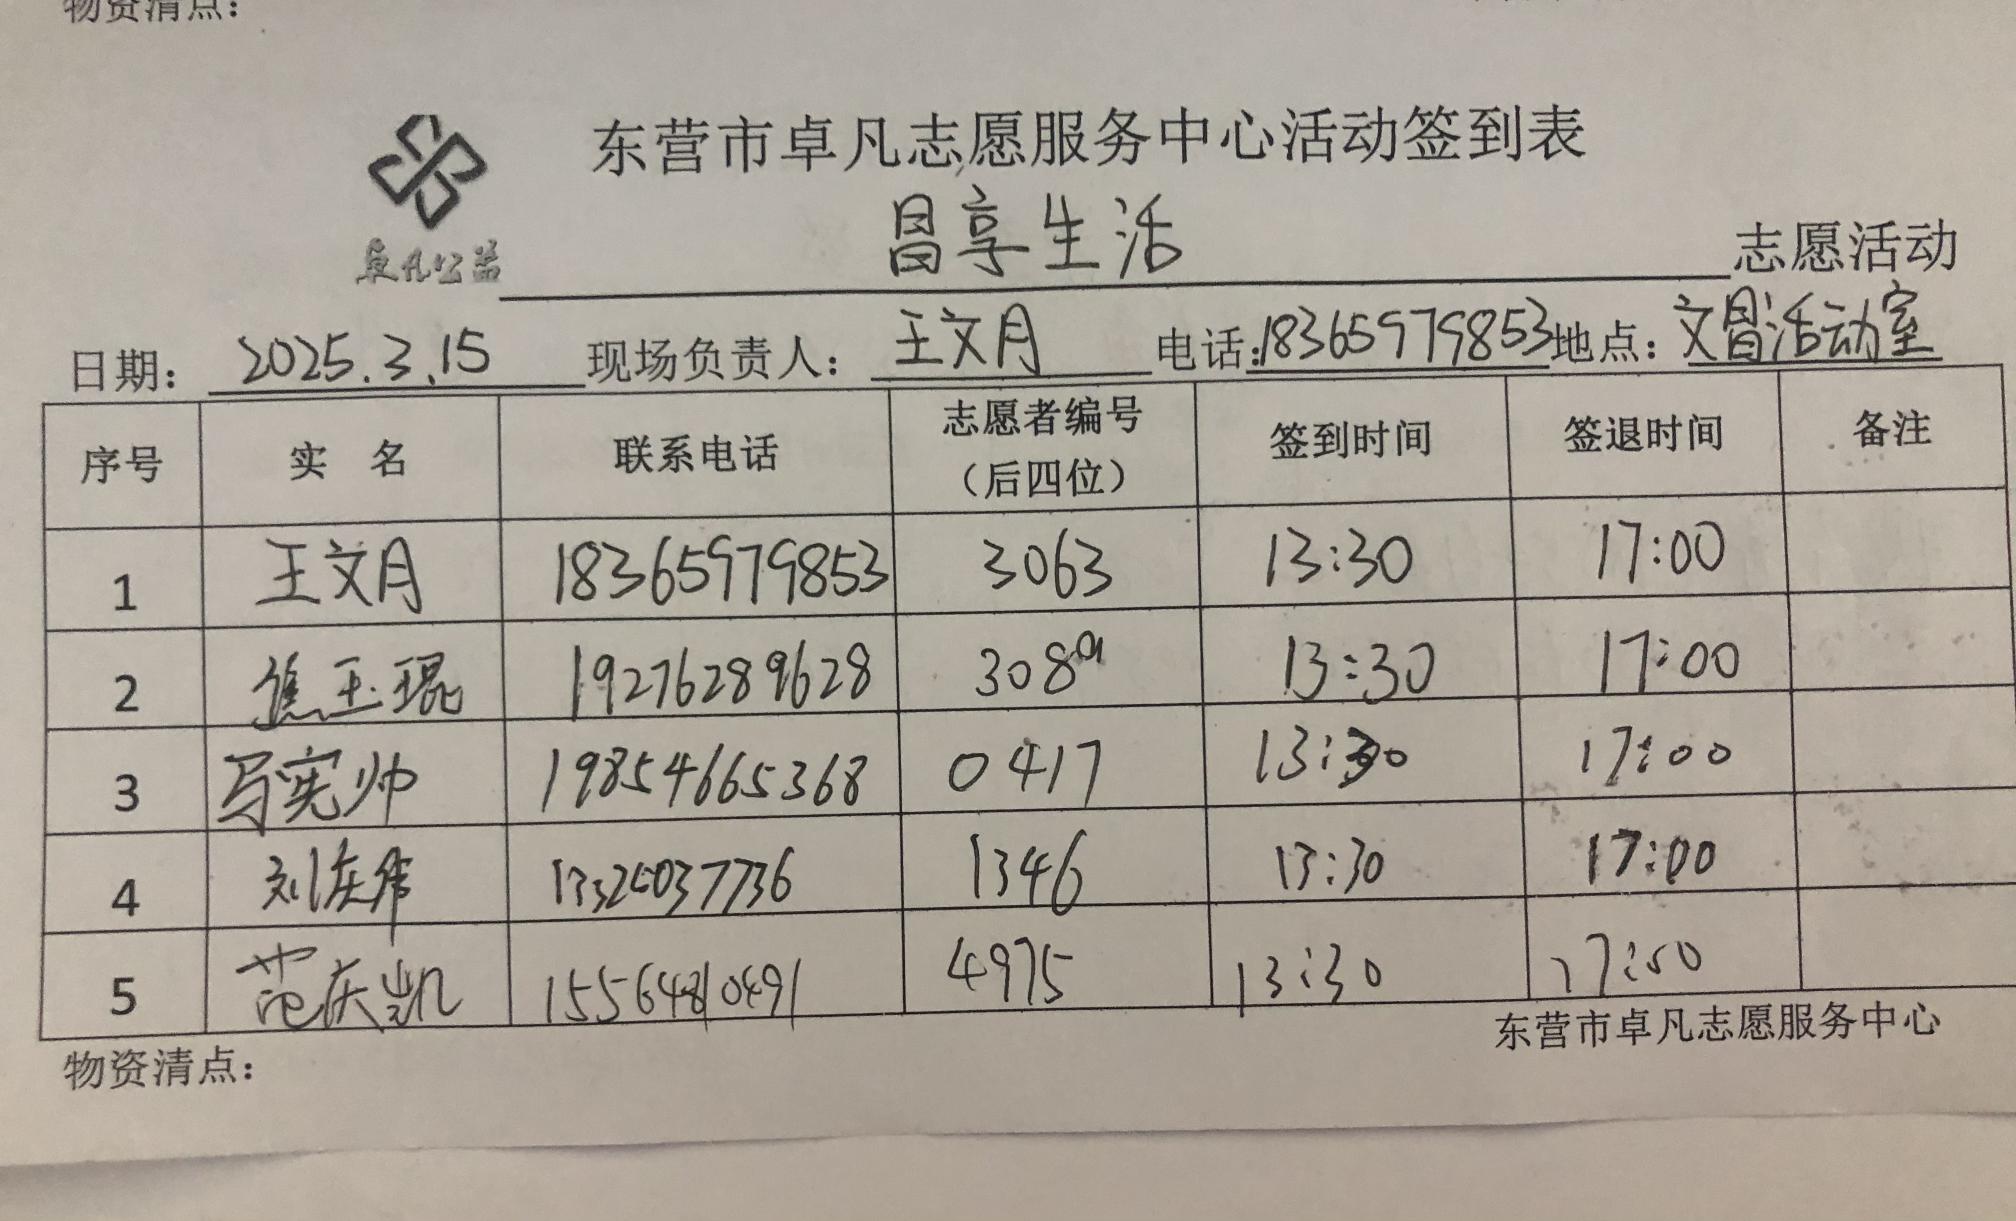 物资清点：
东营市卓凡志愿服务中心活动签到表
卓凡公益
昌享生活 志愿活动
日期： 2025.3.15 现场负责人： 王文月 电话：18365979853 地点： 文昌活动室
序号 实 名 联系电话 志愿者编号（后四位） 签到时间 签退时间 备注
1 王文月 18365979853 3063 13:30 17:00
2 焦玉琨 19276289628 308 13:30 17:00
3 马宪帅 19854665368 0417 13:30 17:00
4 刘庆 1346 13:30 17:00
5 范庆凯 15564810491 4975 13:30 17:00
物资清点： 东营市卓凡志愿服务中心